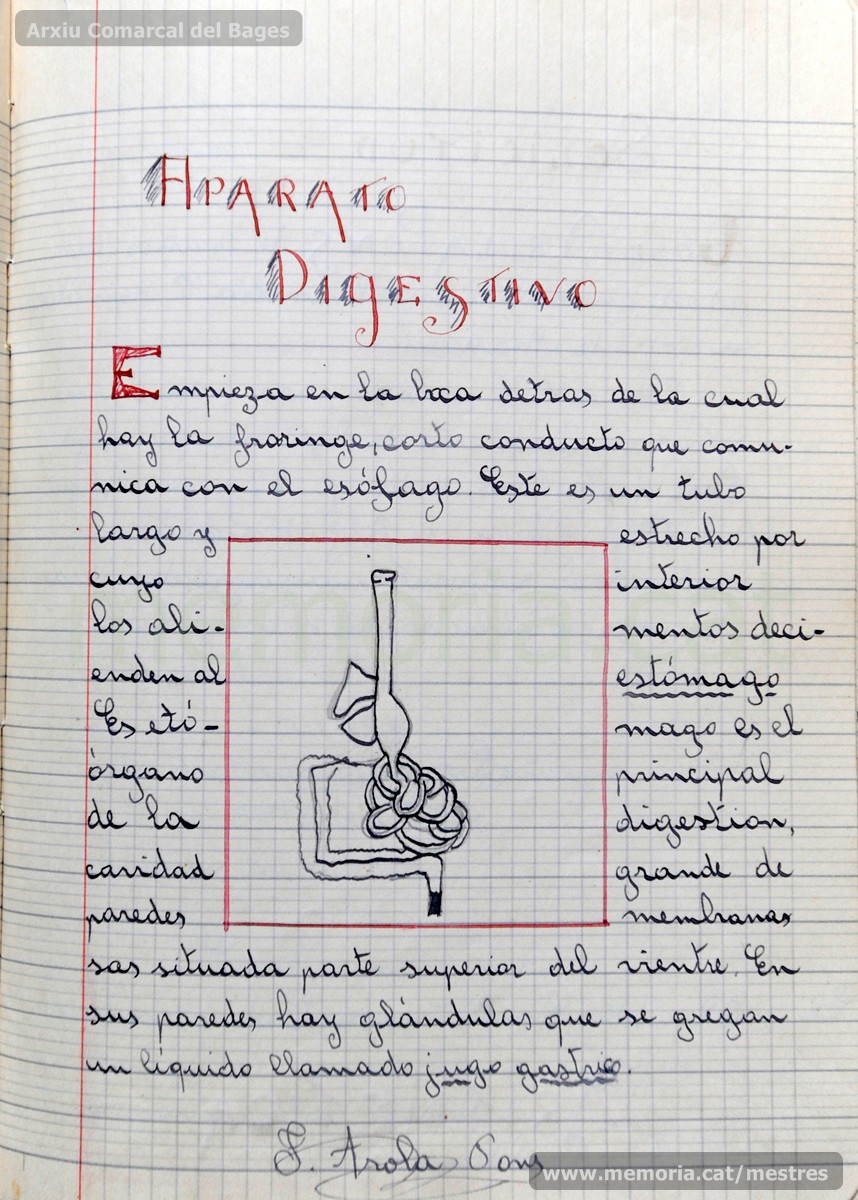 Arxiu Comarcal del Bages
APARATO
DIGESTIVO
Empieza en la boca detras de la cual
hay la fraringe, corto conducto que comu-
nica con el esófago. Este es un tubo
largo y estrecho por
cuyo interior
los ali- mentos deci-
enden al estómago
Es etó- mago es el
órgano principal
de la digestion,
cavidad grande de
paredes membranas
sas situada parte superior del vientre. En
sus paredes hay glándulas que se gregan
un líquido llamado jugo gastrico.
F. Arola Pons
www.memoria.cat/mestres